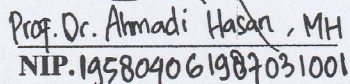 Prof. Dr. Ahmadi Hasan, MH
NIP. 195804061987031001